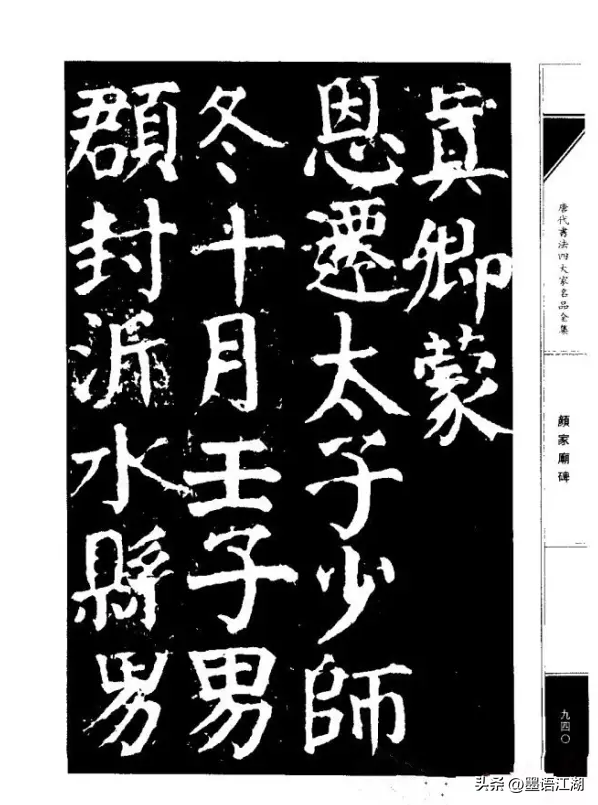 真卿蒙
恩遷太子少師
冬十月壬子男
頵封沂水縣男
唐代书法四大家名品全集
顔家廟碑
九四〇
头条@墨语江湖